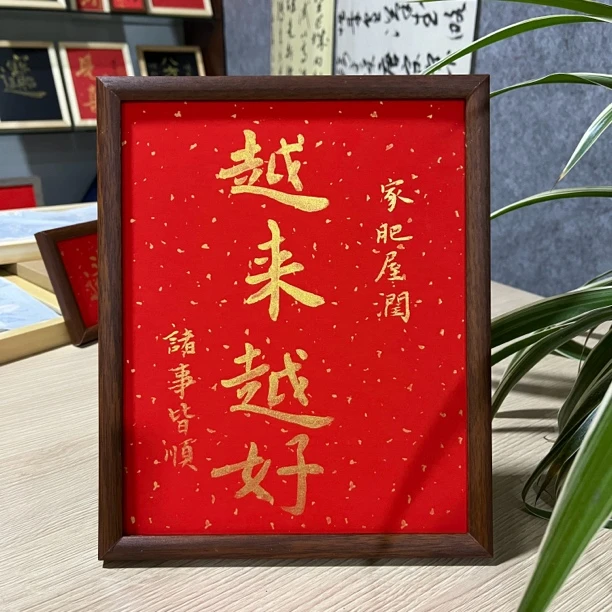 家肥屋潤
越来越好
諸事皆順